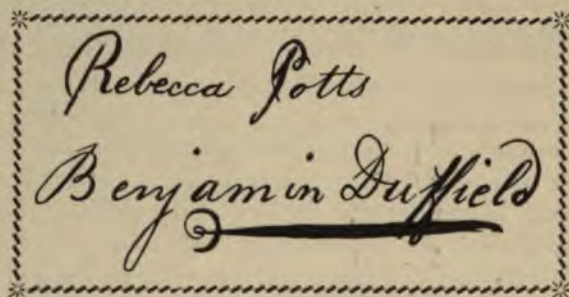 Rebecca Potts
Benjamin Duffield